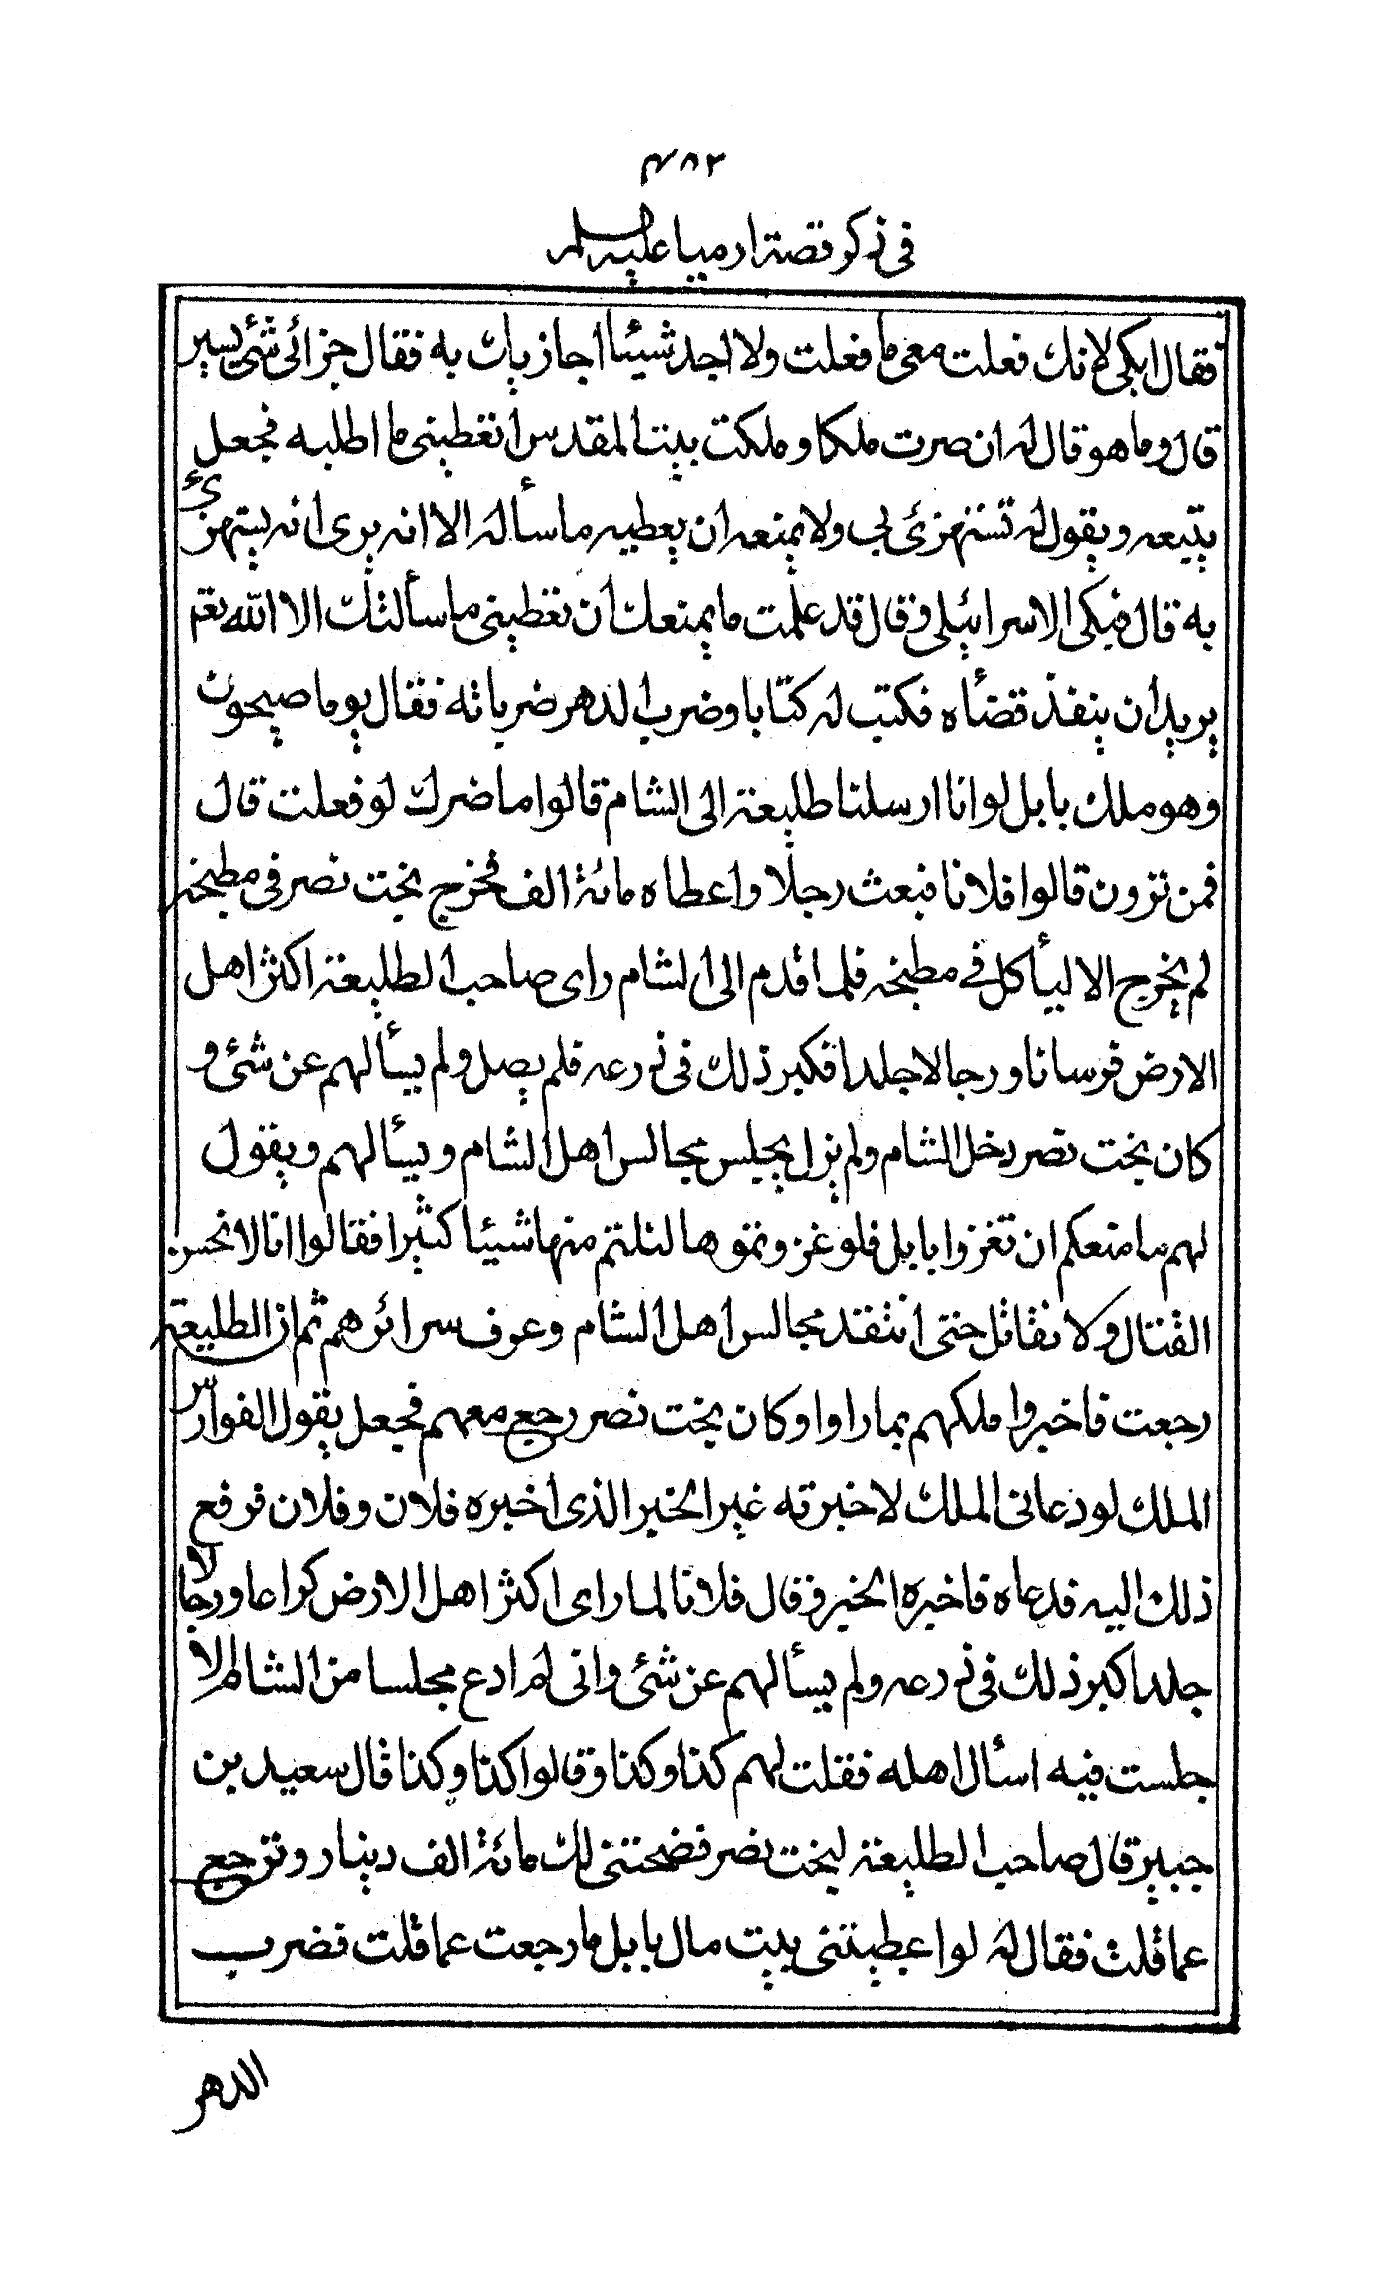 ٤٨٣
في ذكر قصة ارميا عليه السلم
فقال ابكى لانك فعلت معى ما فعلت ولا اجد شيئا اجازيك به فقال جزائى شئ يسير
قال وما هو قال له ان صرت ملكا وملكت بيت المقدس ان تعطينى ما اطلبه فجعل
يتبعه ويقول له تستهزئ بى ولا يمنعه ان يعطيه ما سأله الا انه يرى انه يستهزئ
به قال فبكى الاسرائيلى وقال قد علمت ما يمنعك ان تعطينى ما سألتك الا الله تعم
يريد ان ينفذ قضاه فكتب له كتابا وضرب الدهر ضرباته فقال يوما صيحون
وهو ملك بابل لو انا ارسلنا طليعة الى الشام قالوا ما ضرك لو فعلت قال
فمن ترون قالوا فلانا فبعث رجلا واعطاه مائة الف فخرج بخت نصر فى مطبخه
لم يخرج الا ليأكل في مطبخه فلما قدم الى الشام راى صاحب الطليعة اكثر اهل
الارض فرسانا ورجالا جلدا فكبر ذلك فى ذرعه فلم يصل ولم يسألهم عن شئ و
كان بخت نصر دخل الشام ولم يزل يجلس مجالس اهل الشام ويسألهم ويقول
لهم ما منعكم ان تغزوا بابل فلو غزوتموها لنلتم منها شيئا كثيرا فقالوا انا لا نحسن
القتال ولا نقاتل حتى انتقد مجالس اهل الشام وعرف سرائرهم ثم ان الطليعة
رجعت فاخبروا ملكهم بما راوا وكان بخت نصر رجع معهم فجعل يقول الفوارس
الملك لو دعانى الملك لاخبرته غير الخبر الذى اخبره فلان وفلان فرفع
ذلك اليه فدعاه فاخبره الخبر وقال فلانا لما راى اكثر اهل الارض كراعا ورجالا
جلدا كبر ذلك فى ذرعه ولم يسألهم عن شئ وانى لم ادع مجلسا من الشام الا
جلست فيه اسأل اهله فقلت لهم كذا وكذا وقالوا كذا وكذا قال سعيد بن
جبير قال صاحب الطليعة لبخت نصر فضحتنى لك مائة الف دينار وترجع
عما قلت فقال له لو اعطيتنى بيت مال بابل ما رجعت عما قلت فضرب
الدهر